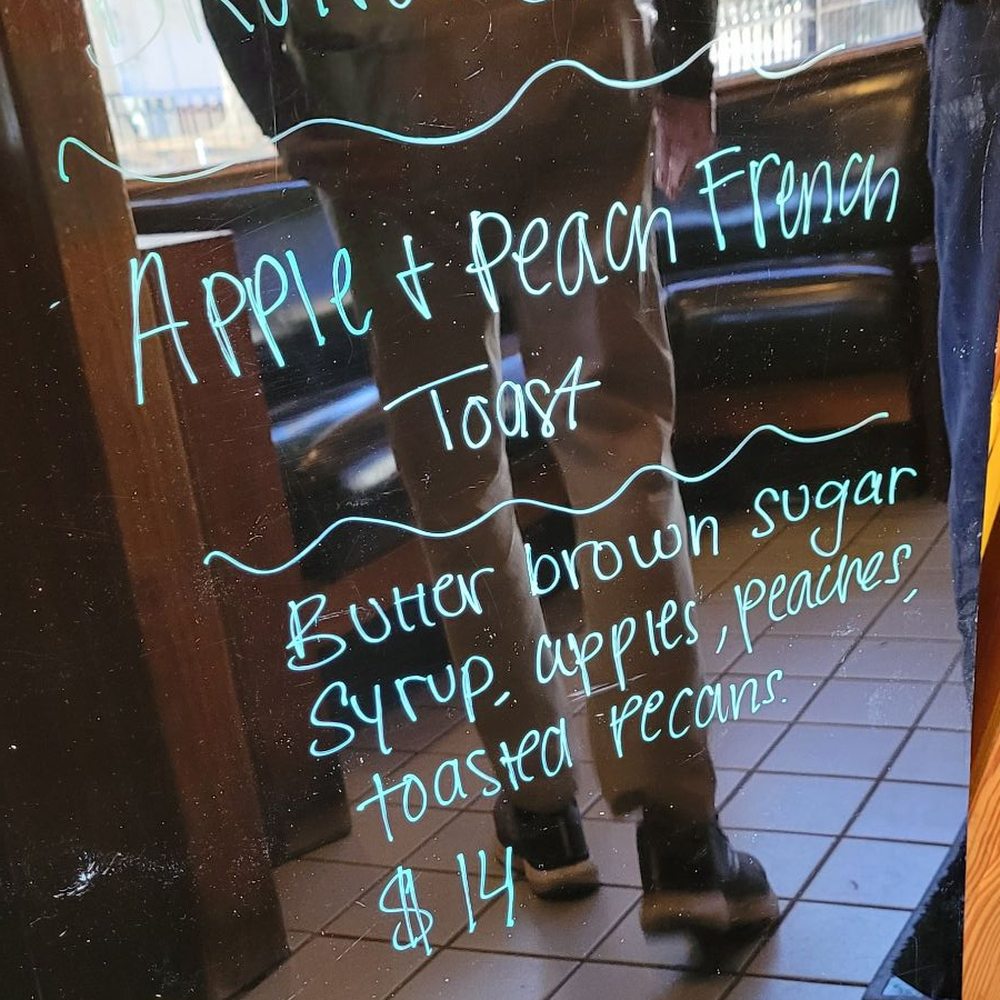 Apple + Peach French
Toast
Butter brown sugar
syrup, apples, peaches,
toasted pecans.
$14